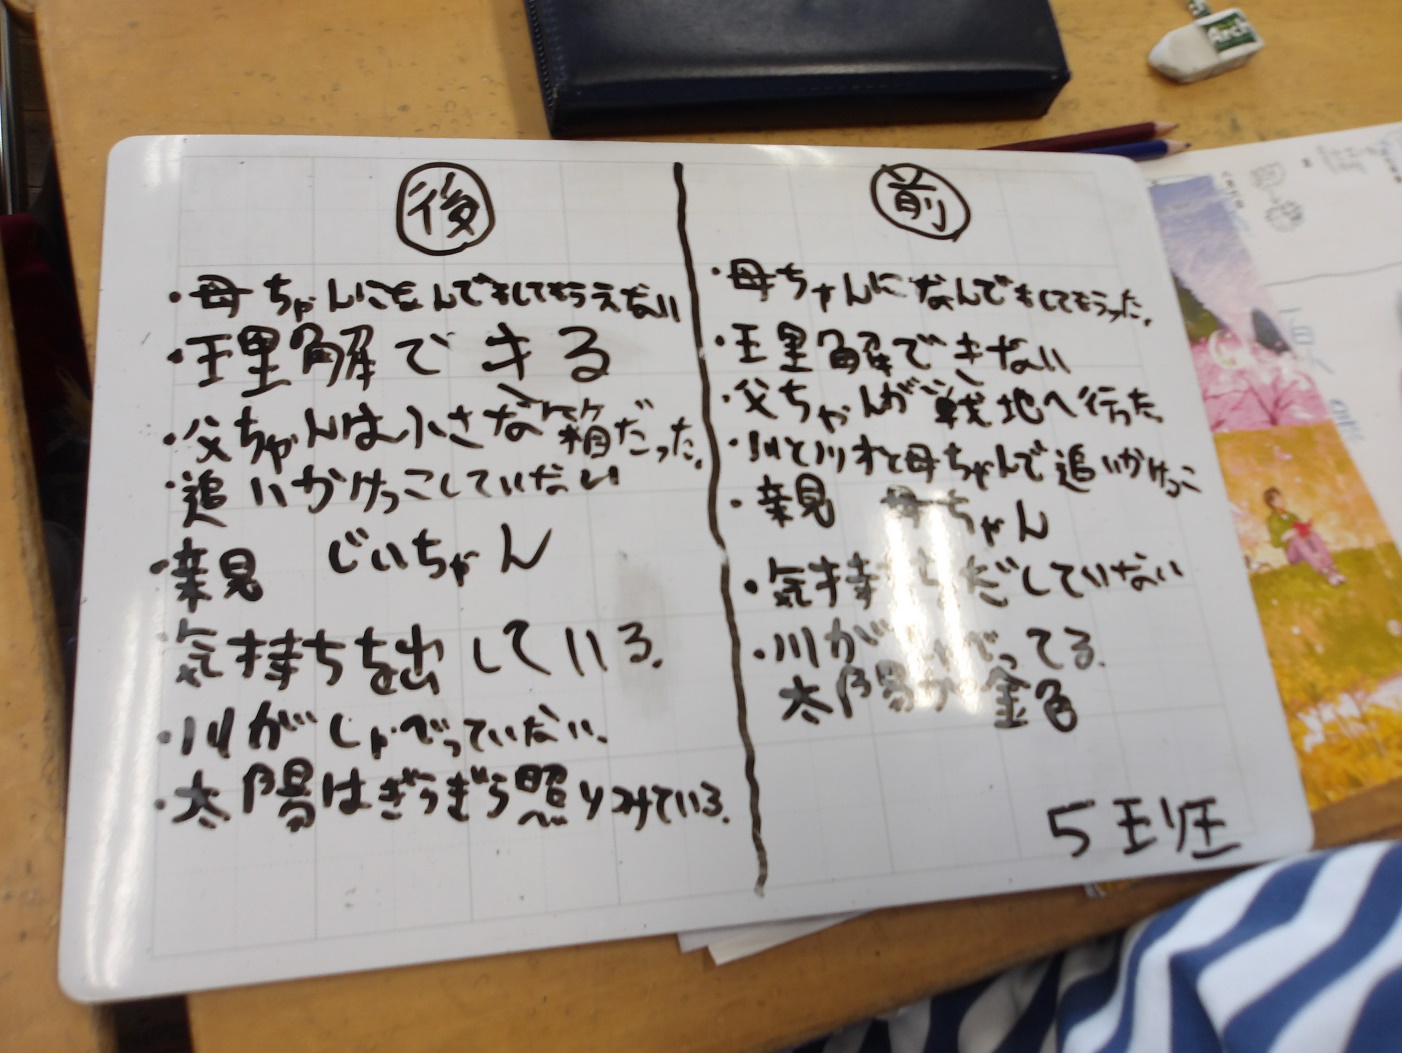 前
・母ちゃんになんでもしてもらった。
・理解できない
・父ちゃんが戦地へ行った
・川と川オと母ちゃんで追いかけっこ
・親 母ちゃん
・気持ちだしていない
・川がしゃべってる。
太陽が金色
5班
後
・母ちゃんになんでもしてもらえない
・理解できる
・父ちゃんは小さな箱だった。
・追いかけっこしていない
・親 じいちゃん
気持ちを出している。
・川がしゃべっていない。
・太陽はぎらぎら照りつけている。
Arch